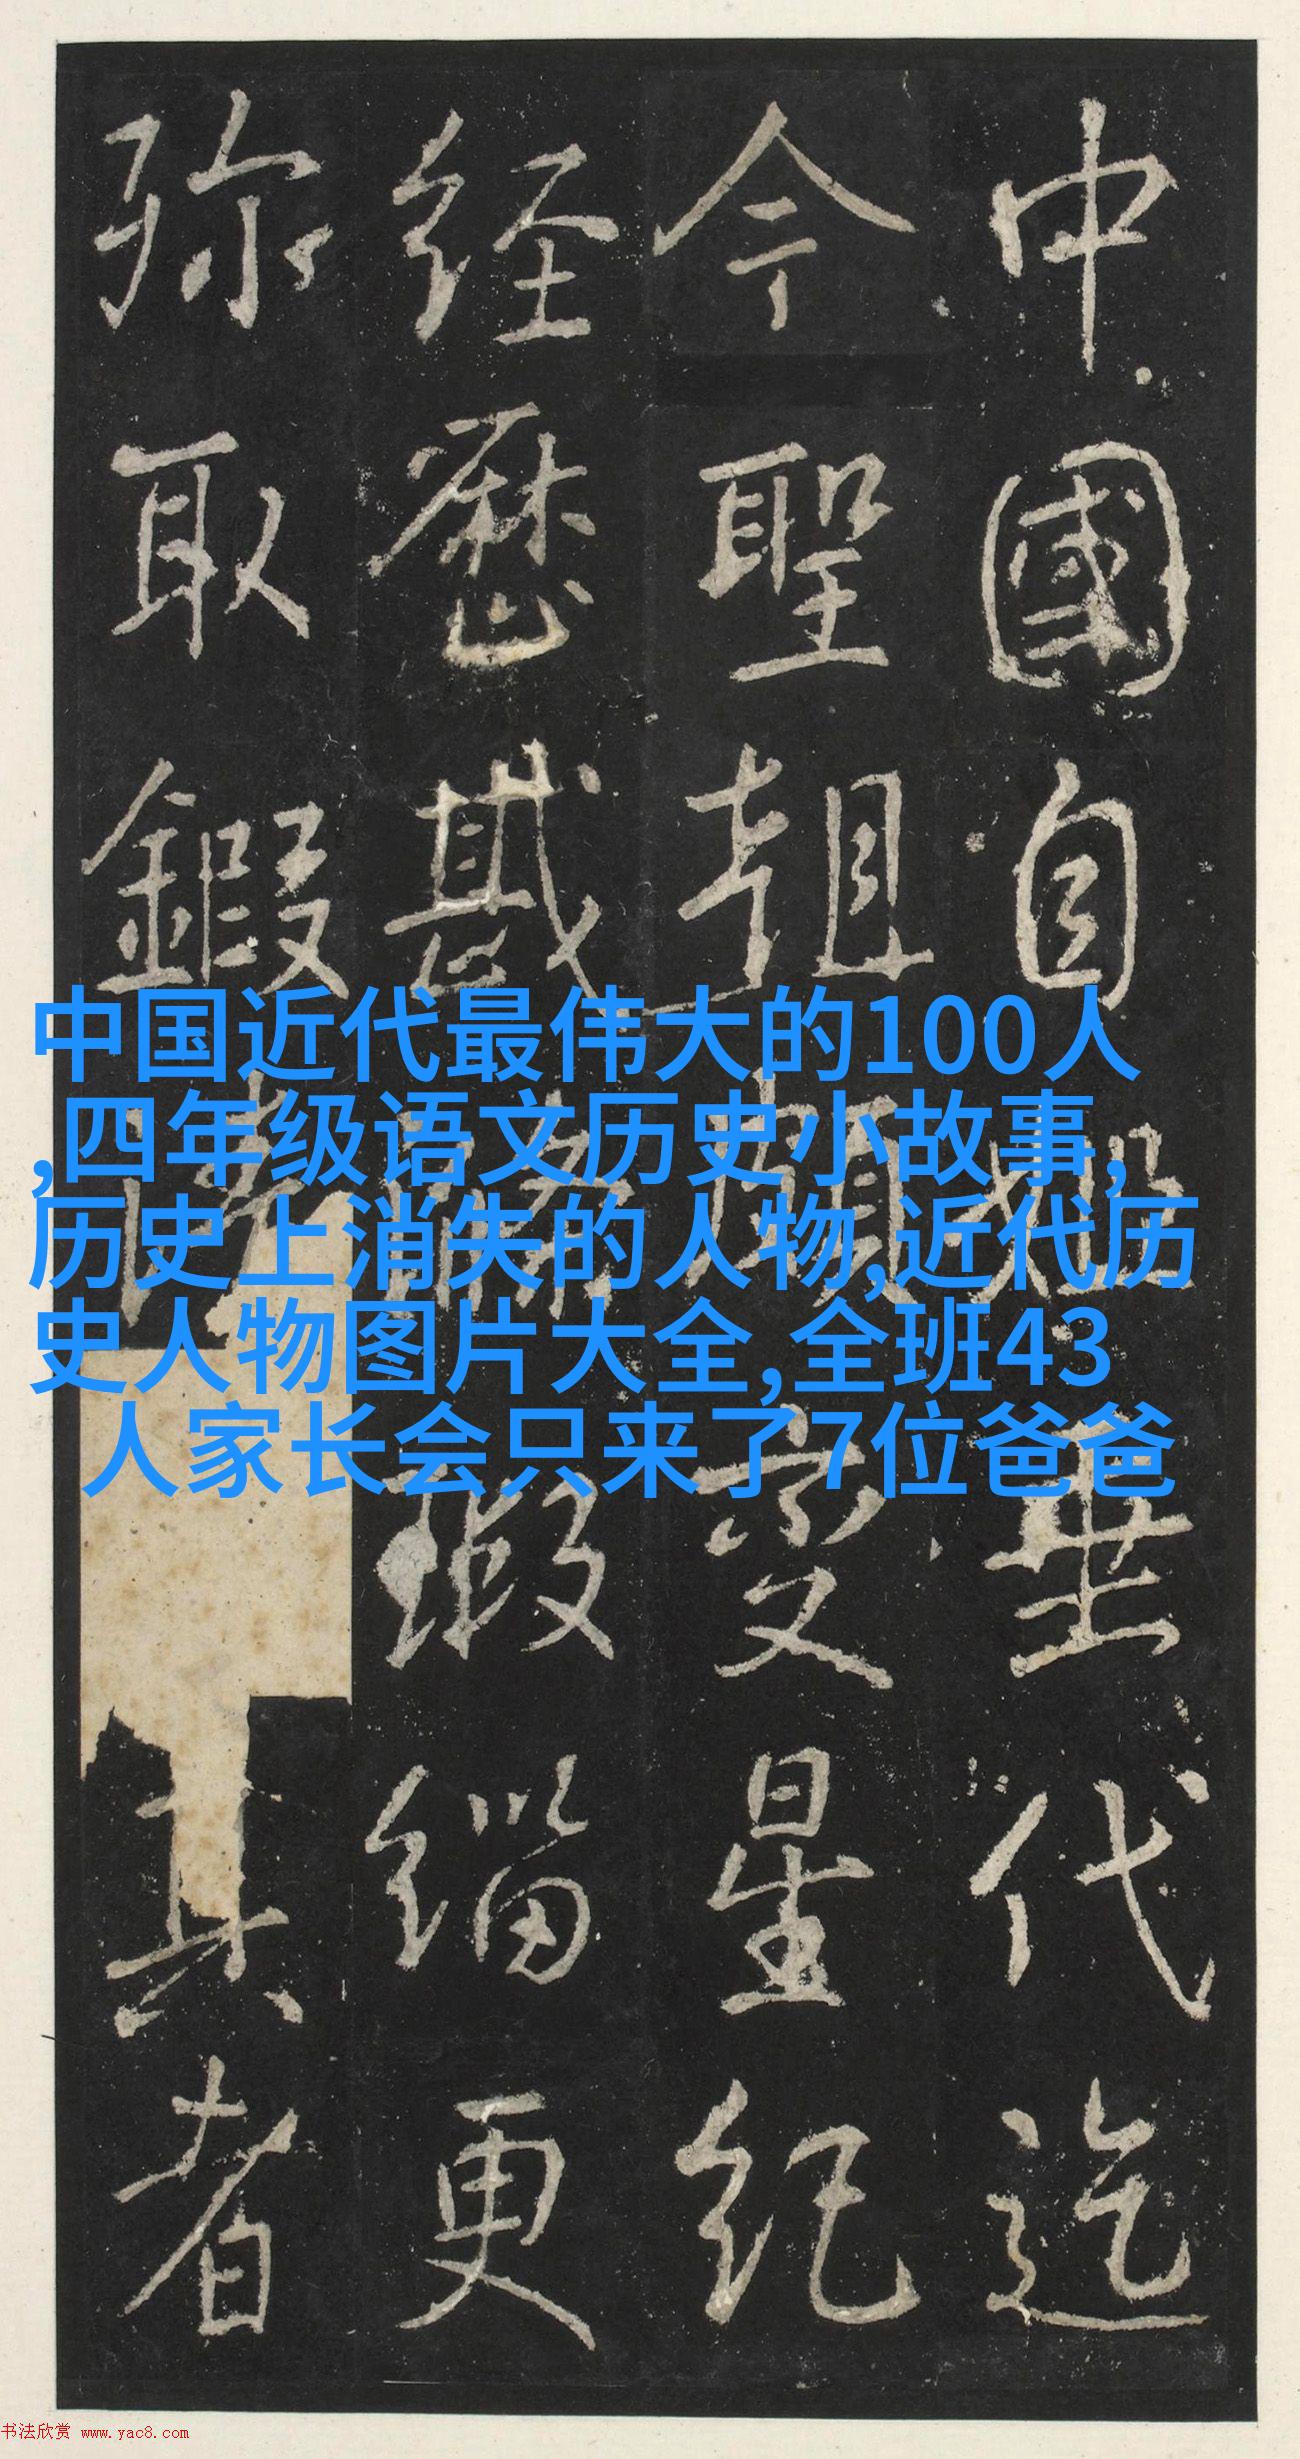 中國自代迄
今聖朝變星紀
經歷瑕緇更
弥取鍜真者
中国近代最伟大的100人
,四年级语文历史小故事,
历史上消失的人物,近代历
史人物图片大全,全班43
人家长会只来了7位爸爸
书法欣赏 www.yac8.com